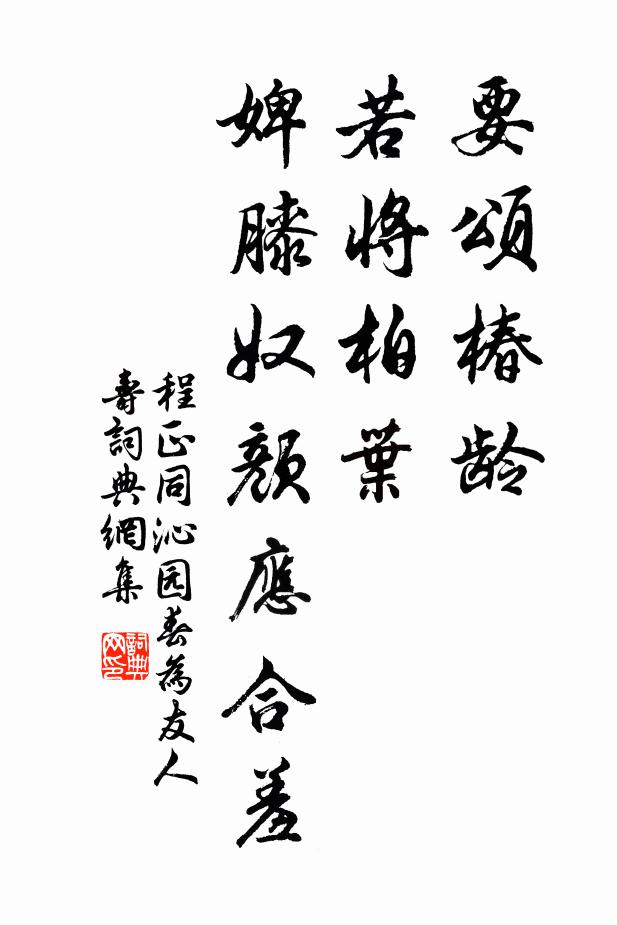 要頌椿龄
若將柏葉
婢膝奴颜應合羞
程正同沁园春為友人
壽詞典網集
詞典
网印